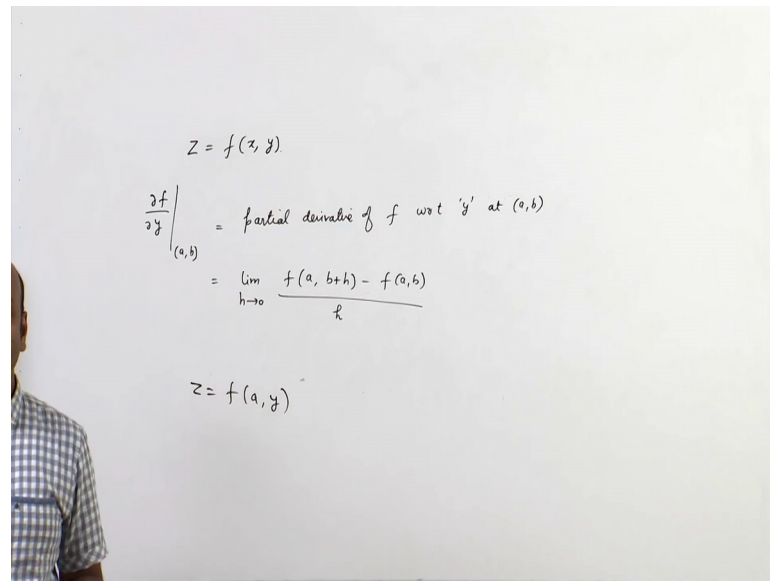 Z = f(x, y)
∂f/∂y |(a,b) = partial derivative of f w.r.t 'y' at (a,b)
= lim h→0 f(a, b+h) - f(a,b) / h
Z = f(a, y)